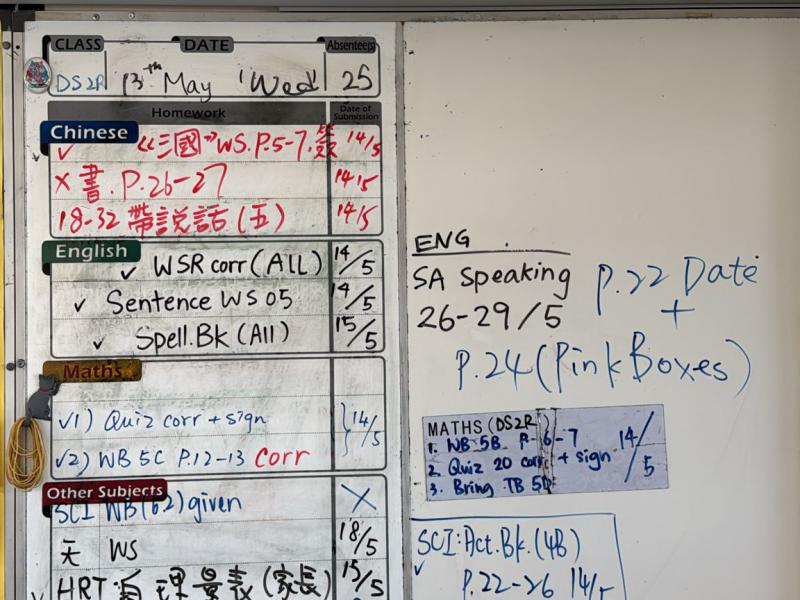 CLASS DATE Absentee(s)
DS2R 13th May 'Wed' 25
Homework Date of Submission
Chinese
✓ 《三國》WS.P.5-7. 14/5
× 書.P.26-27 14/5
18-32 帶説話(五) 14/5
English
✓ WSR corr(ALL) 14/5
✓ Sentence WS 05 14/5
✓ Spell.Bk (All) 15/5
Maths
✓1) Quiz corr + sign
✓2) WB 5C P.12-13 Corr } 14/5
Other Subjects
SCI WB(62) given X
WS 18/5
HRT: 自理量表(家長) 15/5
ENG
SA Speaking
26-29/5
P.22 Date
+
P.24 (Pink Boxes)
MATHS (DS2R)
1. WB 5B P. 6-7
2. Quiz 20 corr + sign 14/5
3. Bring TB
SCI: Act.Bk.(4B)
✓ P.22-26 14/5